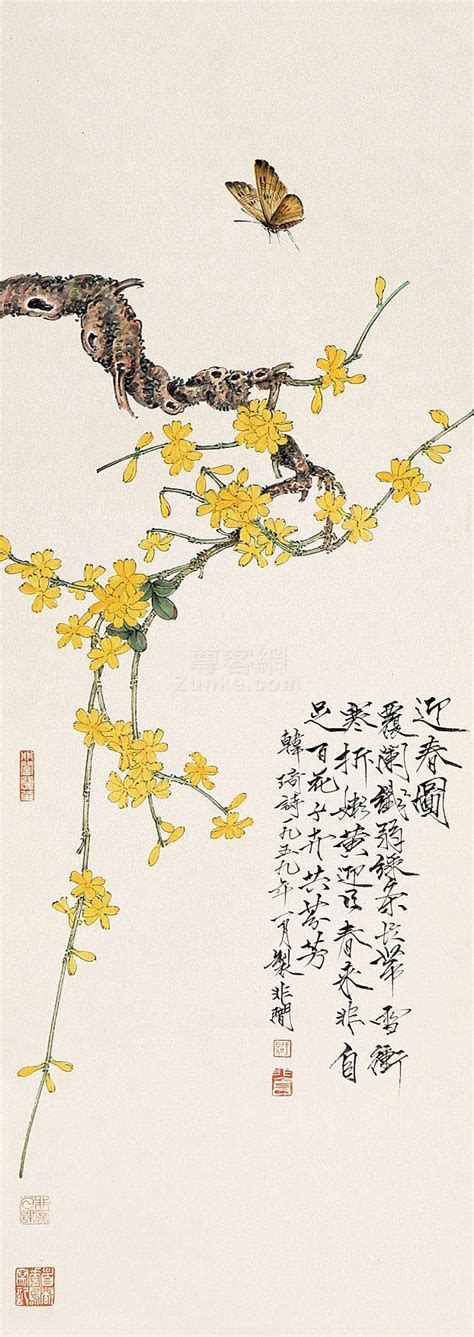 迎春圖
覆闌纖弱綠條長帶雪衝
寒折嫩黃迎得春來非自
足百花千卉共芬芳
韓琦詩一九五九年一月製非闇
尊客網
Zunke.com